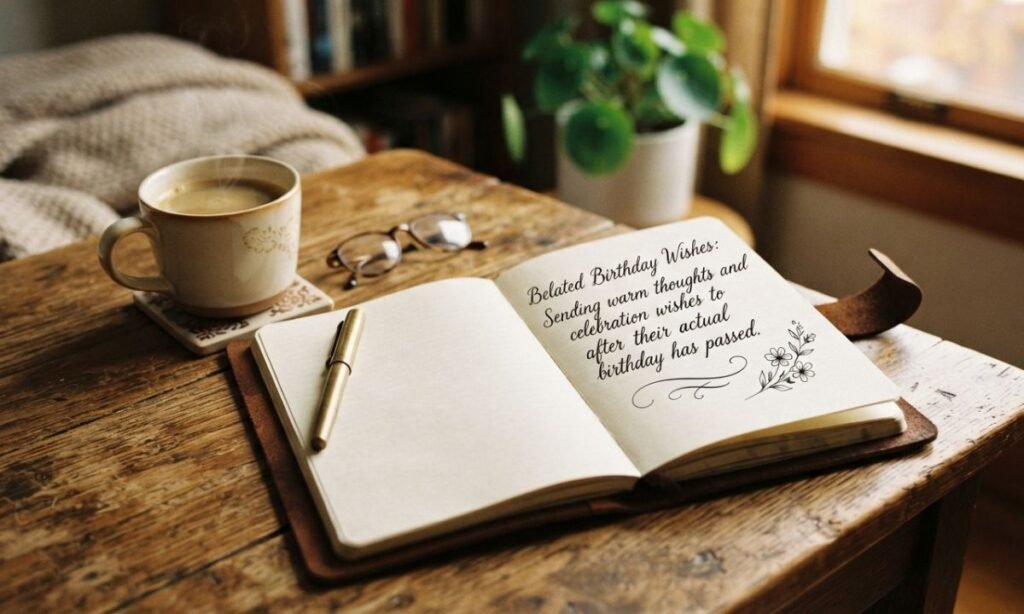 Belated Birthday Wishes:
Sending warm thoughts and
celebration wishes to
after their actual
birthday has passed.